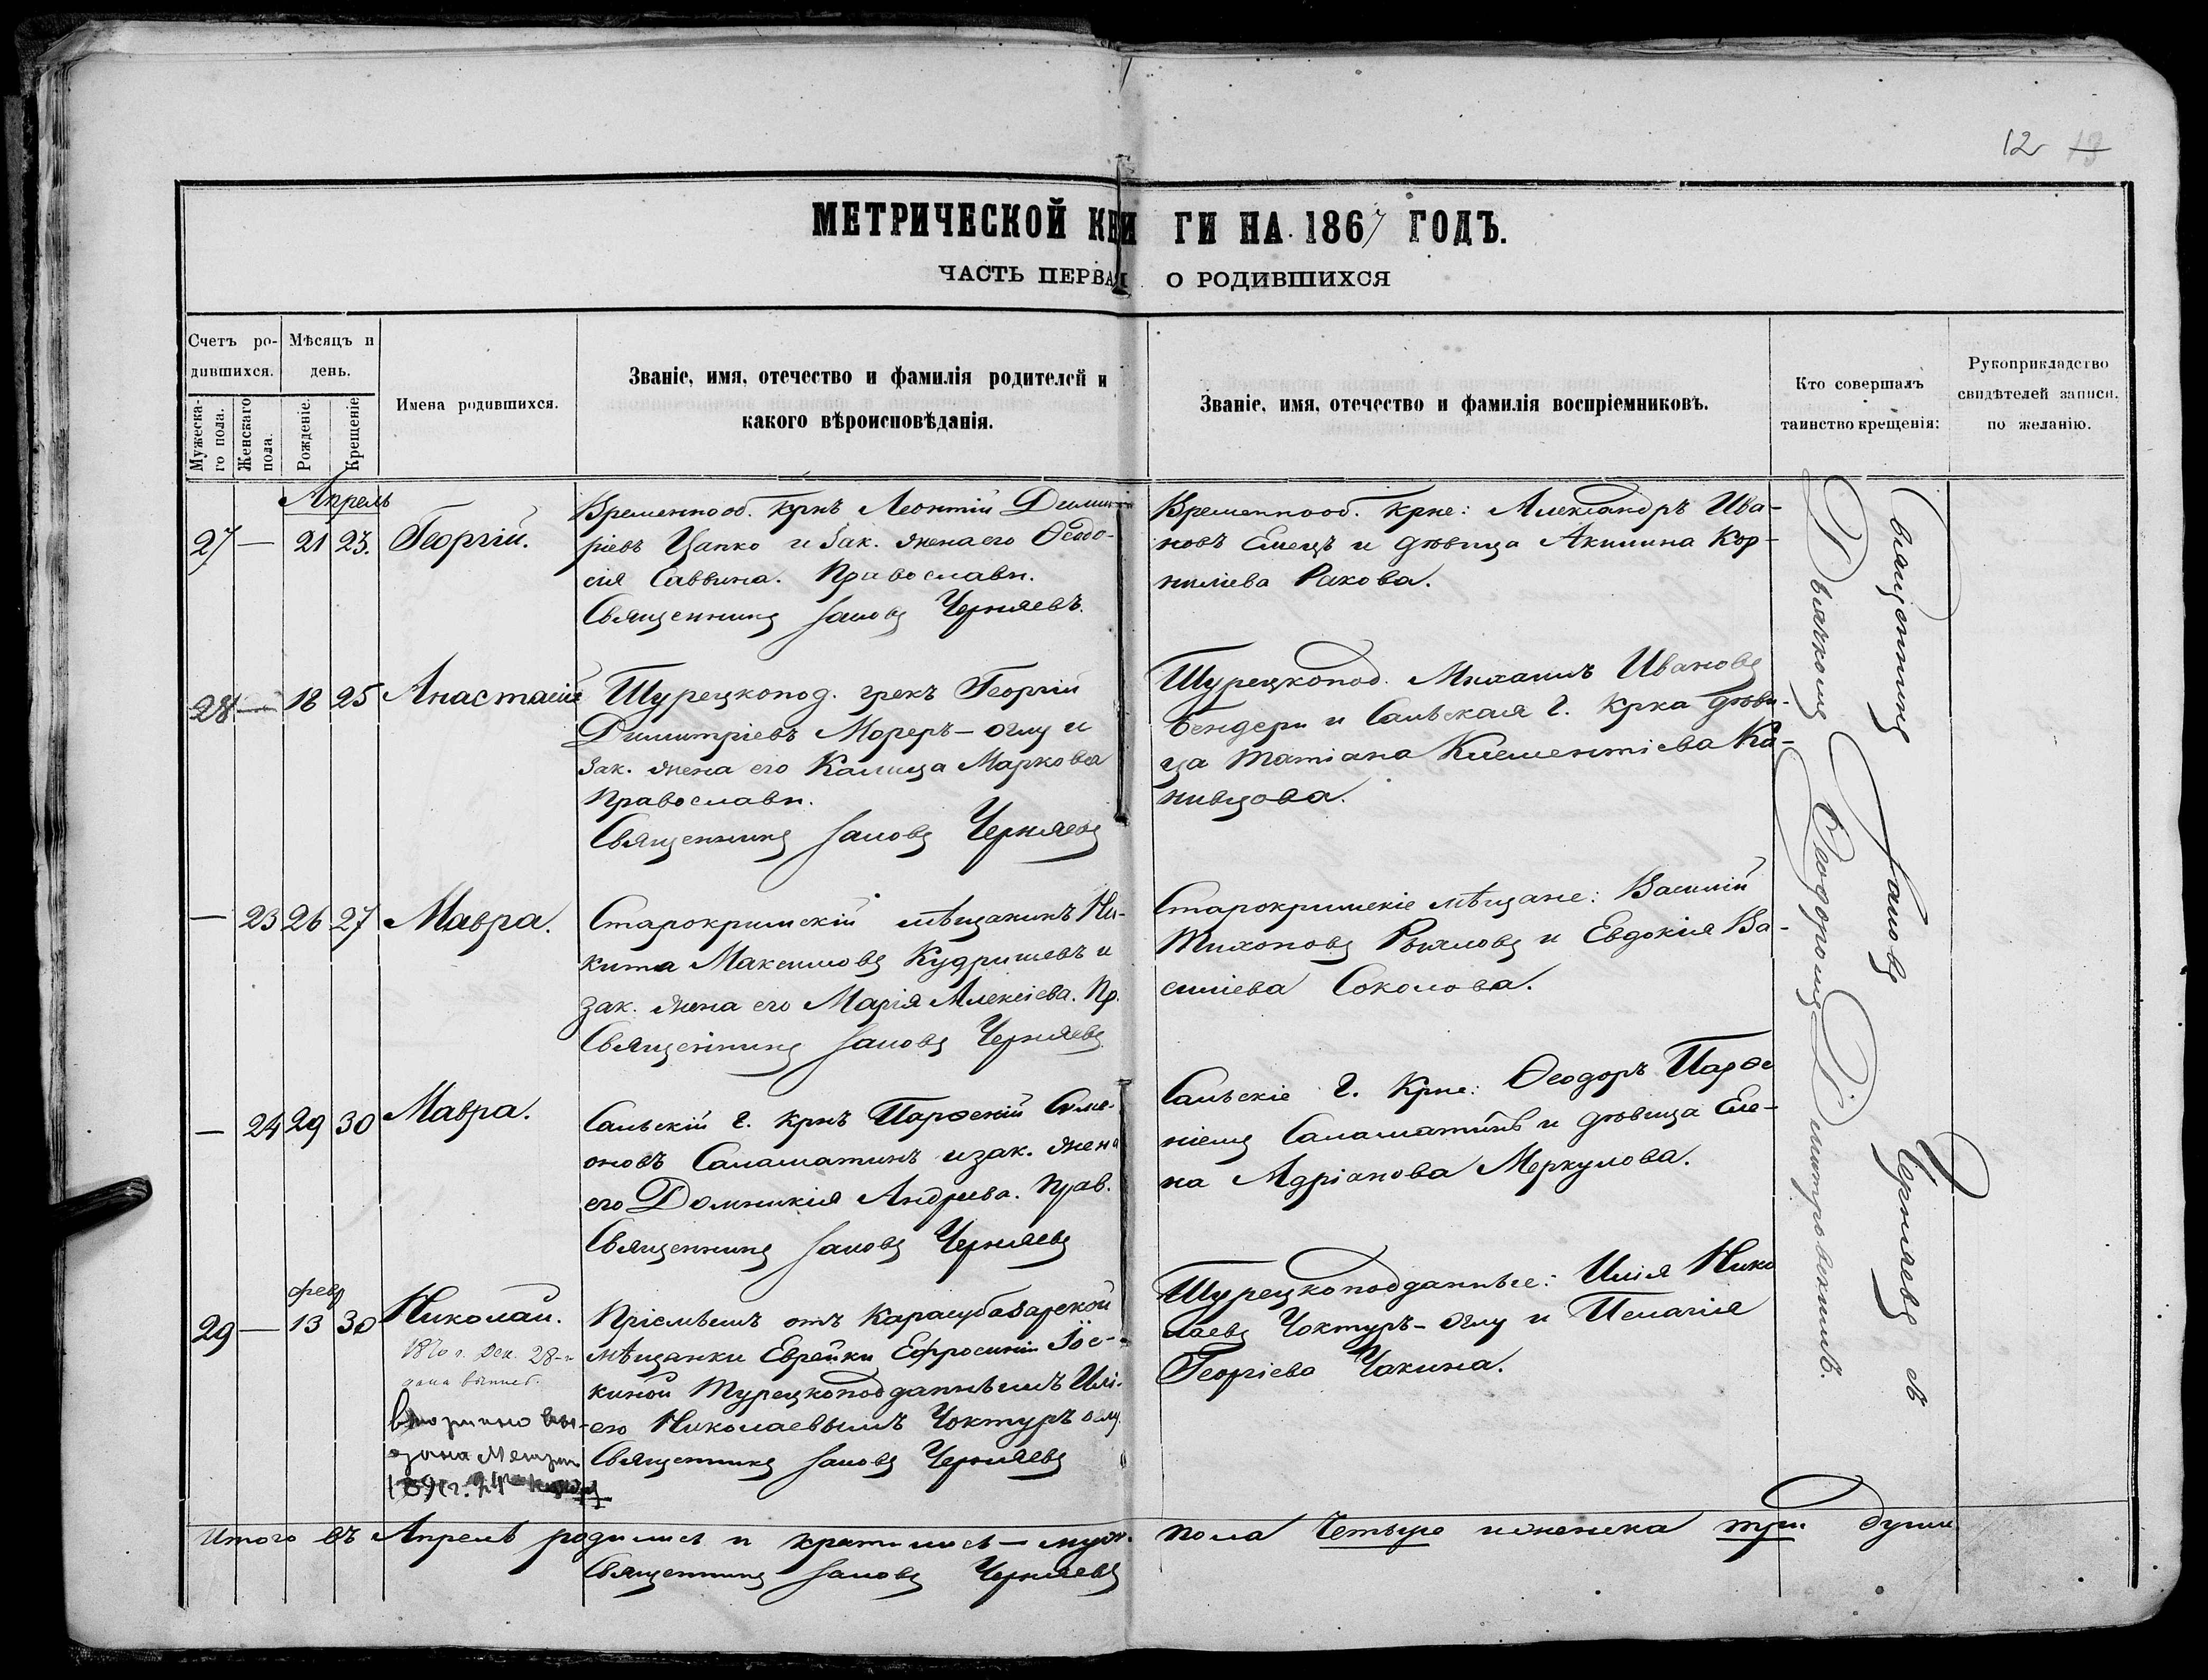 12 13
МЕТРИЧЕСКОЙ КНИГИ НА 1867 ГОДЪ.
ЧАСТЬ ПЕРВАЯ О РОДИВШИХСЯ
Счетъ ро-
дившихся.
Мѣсяцъ и
день.
Мужеска-
го пола.
Женскаго
пола.
Рожденіе.
Крещеніе
Имена родившихся.
Званіе, имя, отечество и фамилія родителей и
какого вѣроисповѣданія.
Званіе, имя, отечество и фамилія воспріемниковъ.
Кто совершалъ
таинство крещенія:
Рукоприкладство
свидѣтелей записи,
по желанію.
Апрель
27 — 21 23. Георгій.
Временнооб. крнъ Леонтій Димит
ріевъ Цапко и зак. жена его Ѳеодо-
сія Саввина. Православн.
Священникъ Іаковъ Черняевъ.
Временнооб. крне: Александръ Ива-
новъ Емецъ и дѣвица Акилина Кор-
ниліева Ракова.
28 — 18 25 Анастасій
Турецкопод. грекъ Георгій
Димитріевъ Мореръ-оглу и
зак. жена его Калица Маркова
Православн.
Священникъ Іаковъ Черняевъ
Турецкопод. Михаилъ Ивановъ
Бендери и Сальская г. крка дѣви-
ца Татіана Климентіева Ка-
нивцова.
— 23 26 27 Мавра.
Старокрымскій мѣщанинъ Ни-
кита Максимовъ Кудришевъ и
зак. жена его Марія Алексіева. Пр.
Священникъ Іаковъ Черняевъ
Старокрымскіе мѣщане: Василій
Тихоновъ Рыжовъ и Евдокія Ва-
силіева Соколова.
— 24 29 30 Мавра.
Сальскій г. крнъ Парѳеній Симе-
оновъ Саламатинъ и зак. жена
его Домникія Андреева. Прав.
Священникъ Іаковъ Черняевъ
Сальскіе г. крне: Ѳеодоръ Парѳе
ніевъ Саламатинъ и дѣвица Еле-
на Адріанова Меркулова.
февр
29 — 13 30 Николай.
1870 г. Дек. 28-го
дана выпись.
вторично вы-
дана Метри
Пріемышъ отъ Карасубазарской
мѣщанки Еврейки Ефросиніи Іос-
киной Турецкоподданнымъ Илі-
ею Николаевымъ Чоктуръ оглу.
Священникъ Іаковъ Черняевъ
Турецкоподданные: Илія Нико
лаевъ Чоктуръ-оглу и Пелагія
Георгіева Чакина.
Священникъ Іаковъ Черняевъ съ
Дьякономъ Ѳеодоромъ Димитровскимъ.
Итого въ Апрелѣ родились и крестились — муж. пола четыре и женска три души
Священникъ Іаковъ Черняевъ